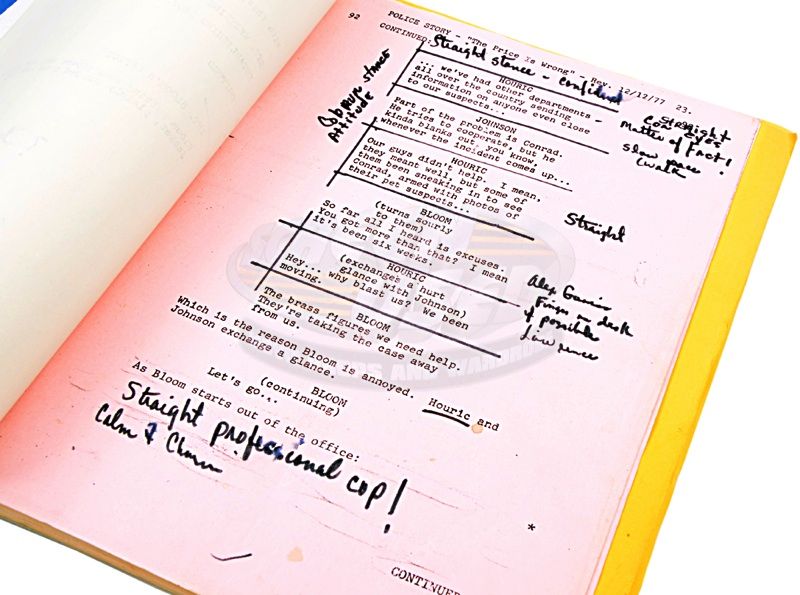 POLICE STORY - "The Price Is Wrong" - Rev. 12/12/77 23.
92 CONTINUED:
Straight stance - confident
HOURIC
... we've had other departments -
all over the country sending
information on anyone even close
to our suspects...
Straight
Con Eyes
Matter of fact!
slow pace
(walk
stance
Attitude
JOHNSON
Part of the problem is Conrad.
He tries to cooperate, but he
kinda blanks out, you know,
whenever the incident comes up...
HOURIC
Our guys didn't help. I mean,
they meant well, but some of
them been sneaking in to see
Conrad, armed with photos of
their pet suspects...
Straight
BLOOM
(turns sourly
to them)
So far all I heard is excuses.
You got more than that? I mean
it's been six weeks.
HOURIC
(exchanges a hurt
glance with Johnson)
Hey... why blast us? We been
moving.
Alex
desk
if possible
Lawrence
BLOOM
The brass figures we need help.
They're taking the case away
from us.
Which is the reason Bloom is annoyed. Houric and
Johnson exchange a glance.
BLOOM
(continuing)
Let's go...
As Bloom starts out of the office:
Straight professional cop!
Calm &
*
CONTINUED